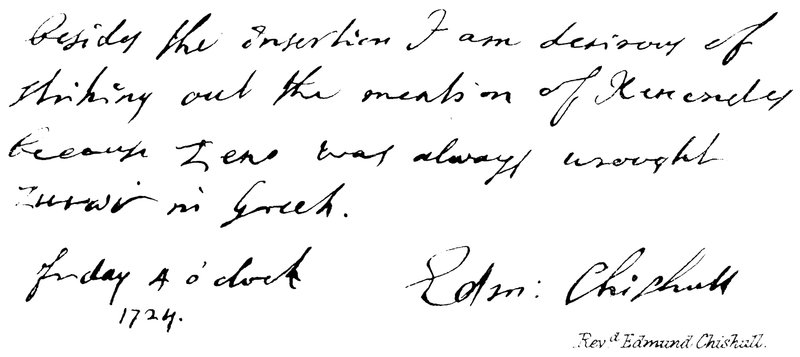 besides the insertion I am desirous of
striking out the mention of
because Zeno was always wrought
in Greek.
Friday 4 o'clock
1724.
Edm: Chishull
Revd Edmund Chishull.